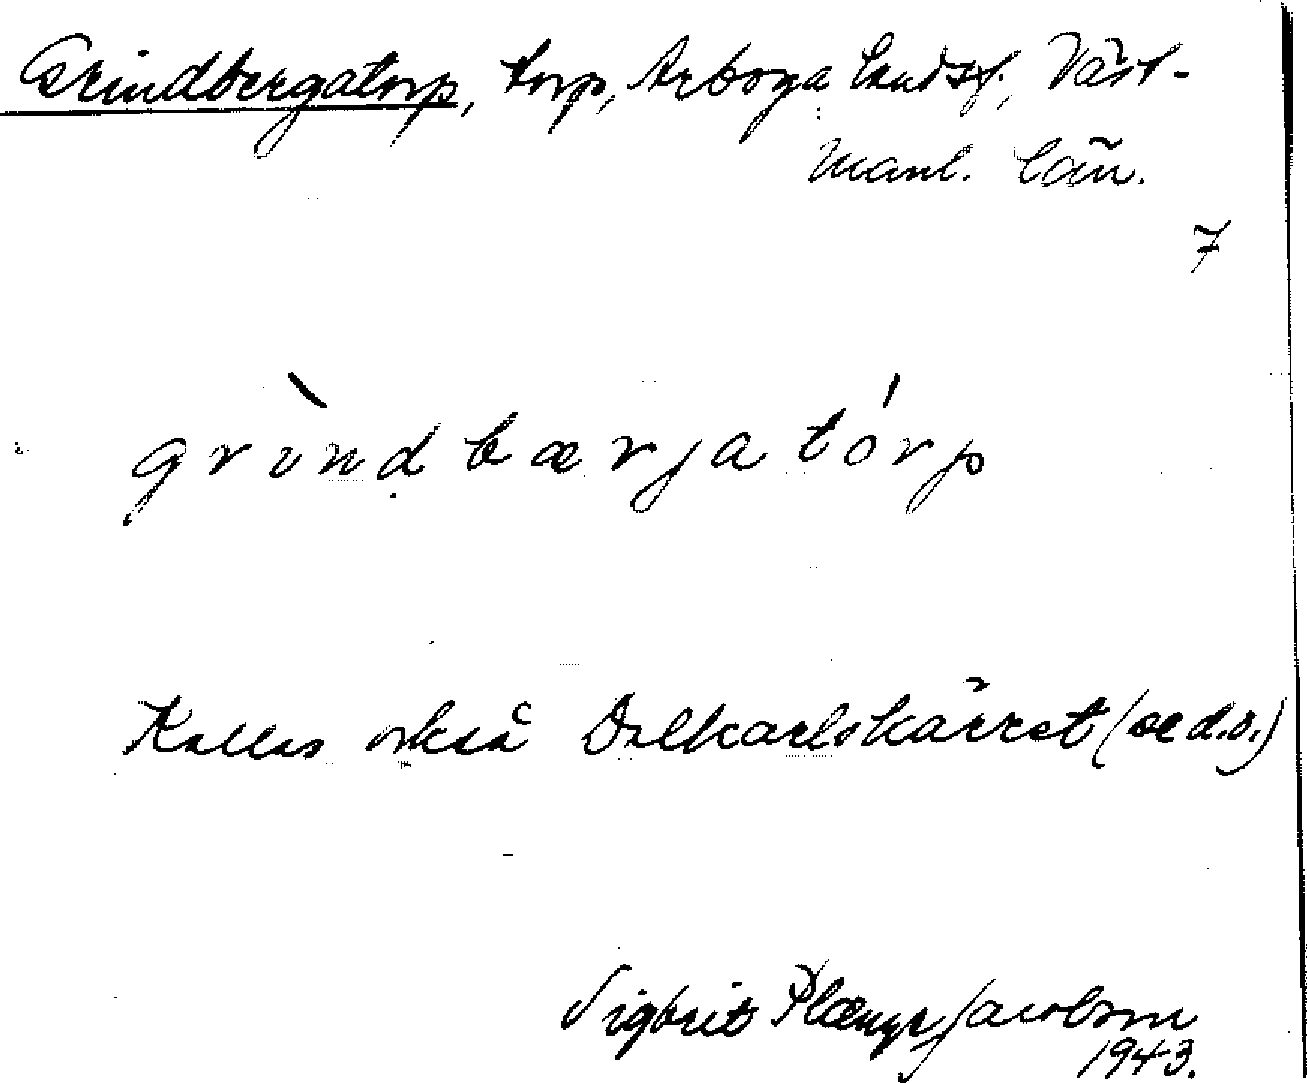 Grindbergatorp, torp, Arboga landsf., Väst-
manl. län.
7
grìndbærjatórp
Kallas också Dalkarlskärret (se d.o.)
Sigbrit Plænge Jacobson
1943.